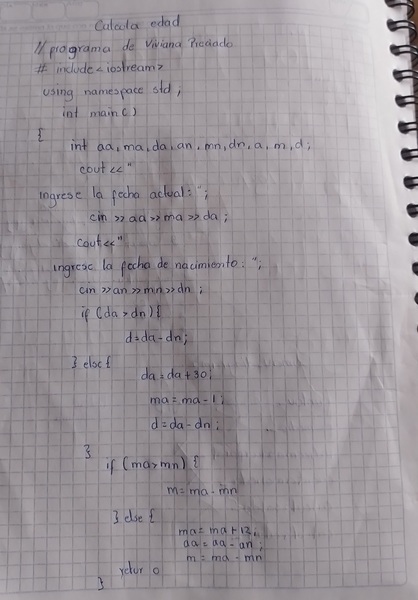 Calcula edad
// programa de Viviana Preciado
# include <iostream>
using namespace std;
int main()
{
int aa, ma, da, an, mn, dn, a, m, d;
cout <<"
ingrese la fecha actual: ";
cin >> aa >> ma >> da;
cout <<"
ingrese la fecha de nacimiento: ";
cin >> an >> mn >> dn;
if (da > dn) {
d = da - dn;
} else {
da = da + 30;
ma = ma - 1;
d = da - dn;
}
if (ma > mn) {
m = ma - mn
} else {
ma = ma + 12;
da = aa - an;
m = ma - mn
retur 0
}